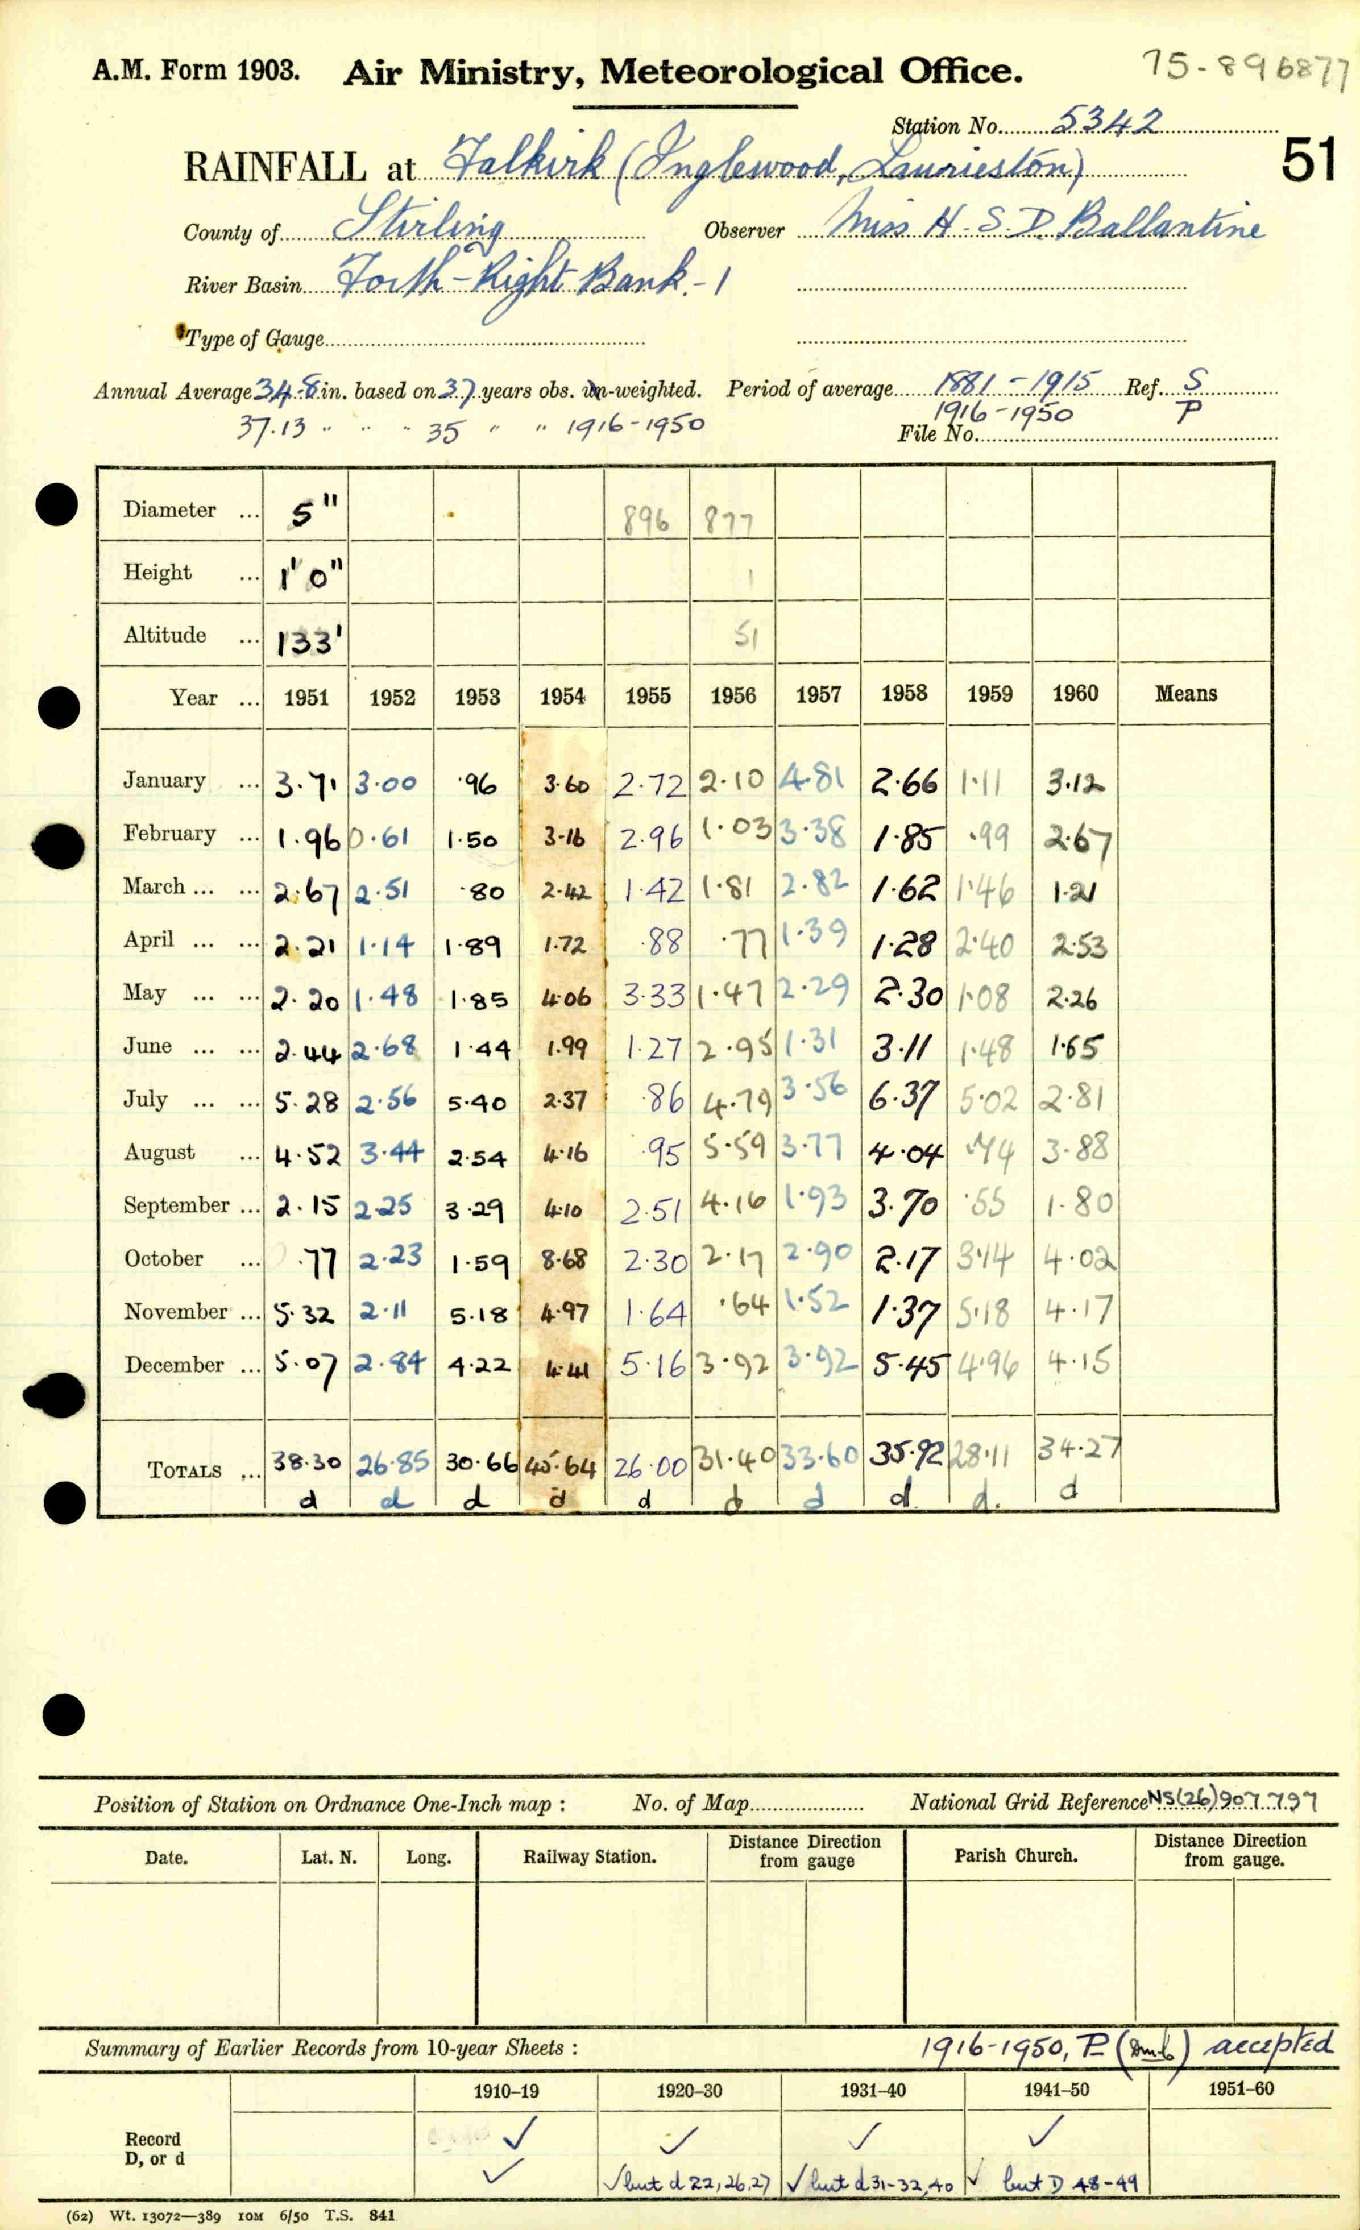 A.M. Form 1903. Air Ministry, Meteorological Office. 75-896877
Station No. 5342
RAINFALL at Falkirk (Inglewood, Laurieston) 51
County of Stirling Observer Miss H. S. D. Ballantine
River Basin Forth - Right Bank. - 1
Type of Gauge
Annual Average 34.8 in. based on 37 years obs. un-weighted. Period of average 1881-1915 Ref. S
37.13 " " " 35 " " 1916-1950 1916-1950 P
File No.
Diameter ... 5" 896 877
Height ... 1' 0" 1
Altitude ... 133' 51
Year ... 1951 1952 1953 1954 1955 1956 1957 1958 1959 1960 Means
January ... 3.71 3.00 .96 3.60 2.72 2.10 4.81 2.66 1.11 3.12
February ... 1.96 0.61 1.50 3.16 2.96 1.03 3.38 1.85 .99 2.67
March ... ... 2.67 2.51 .80 2.42 1.42 1.81 2.82 1.62 1.46 1.21
April ... ... 2.21 1.14 1.89 1.72 .88 .77 1.39 1.28 2.40 2.53
May ... ... 2.20 1.48 1.85 4.06 3.33 1.47 2.29 2.30 1.08 2.26
June ... ... 2.44 2.68 1.44 1.99 1.27 2.95 1.31 3.11 1.48 1.65
July ... ... 5.28 2.56 5.40 2.37 .86 4.79 3.56 6.37 5.02 2.81
August ... 4.52 3.44 2.54 4.16 .95 5.59 3.77 4.04 .74 3.88
September ... 2.15 2.25 3.29 4.10 2.51 4.16 1.93 3.70 .55 1.80
October ... .77 2.23 1.59 8.68 2.30 2.17 2.90 2.17 3.14 4.02
November ... 5.32 2.11 5.18 4.97 1.64 .64 1.52 1.37 5.18 4.17
December ... 5.07 2.84 4.22 4.41 5.16 3.92 3.92 5.45 4.96 4.15
TOTALS ... 38.30 26.85 30.66 45.64 26.00 31.40 33.60 35.92 28.11 34.27
d d d d d d d d d. d
Position of Station on Ordnance One-Inch map : No. of Map National Grid Reference NS(26)907797
Date. Lat. N. Long. Railway Station. Distance Direction from gauge Parish Church. Distance Direction from gauge.
Summary of Earlier Records from 10-year Sheets : 1916-1950, P accepted
1910-19 1920-30 1931-40 1941-50 1951-60
Record ✓ ✓ ✓ ✓
D, or d ✓ ✓ but d 22, 26, 27 ✓ but d 31-32, 40 ✓ but D 48-49
(62) Wt. 13072—389 10M 6/50 T.S. 841